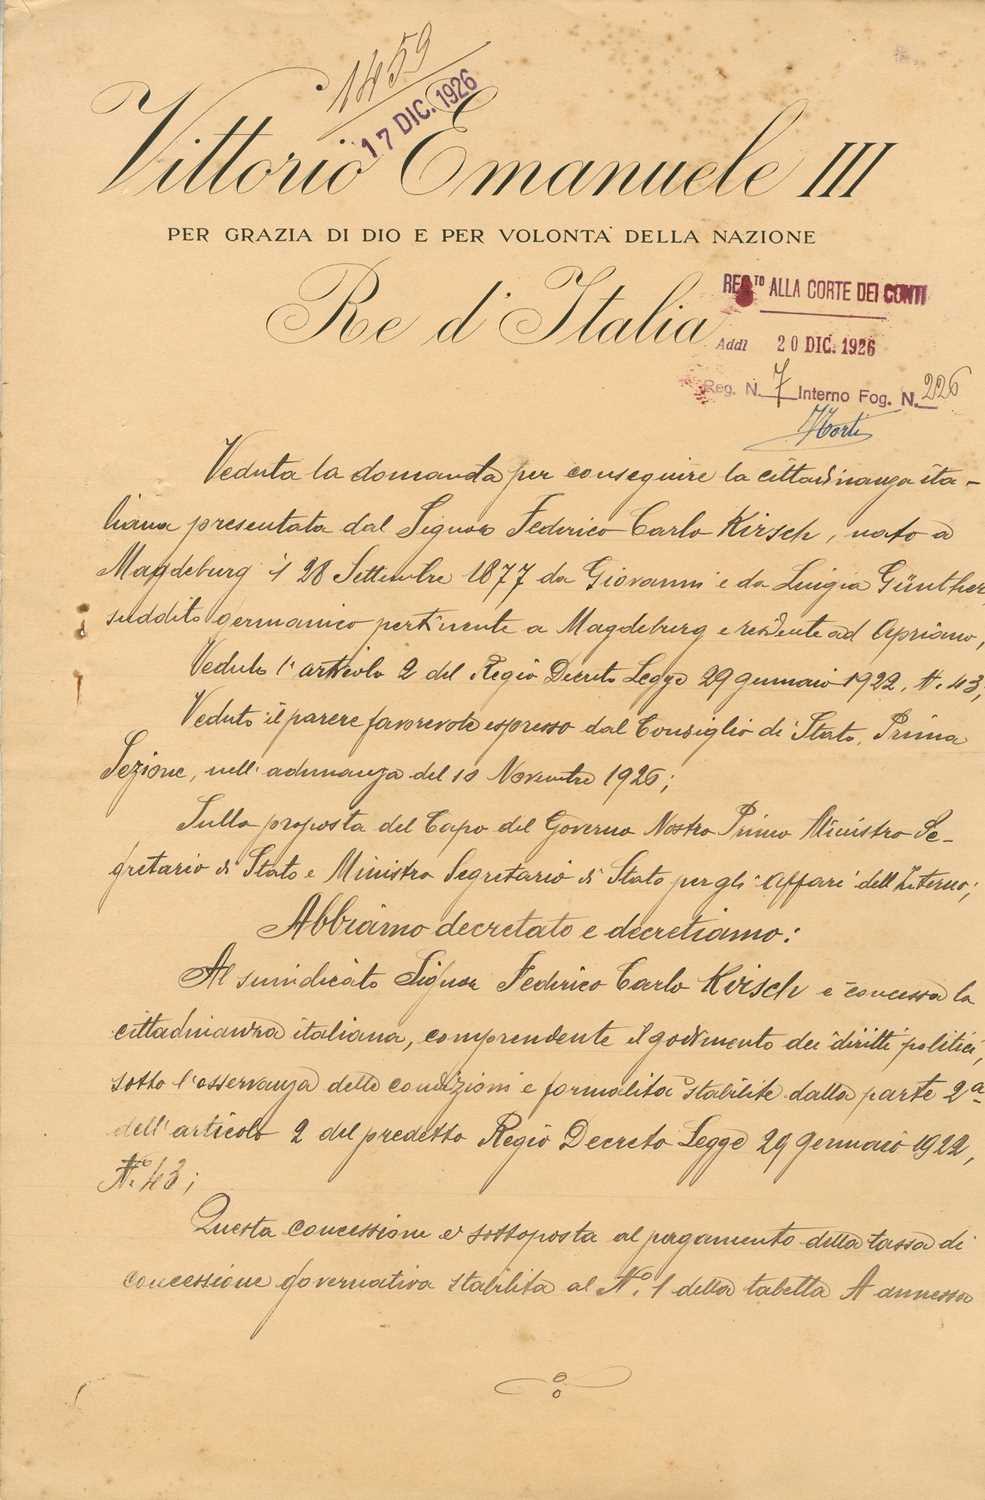 1459
17 DIC. 1926
Vittorio Emanuele III
PER GRAZIA DI DIO E PER VOLONTA' DELLA NAZIONE
Re d'Italia
REG.TO ALLA CORTE DEI CONTI
Addì 20 DIC. 1926
Reg. N. 7 Interno Fog. N. 226
Veduta la domanda per conseguire la cittadinanza ita-
liana presentata dal Signor Federico Carlo Kirsch, nato a
Magdeburg il 28 Settembre 1877 da Giovanni e da Luigia Günther,
suddito germanico pertinente a Magdeburg e residente ad Apriano,
Veduto l'articolo 2 del Regio Decreto Legge 29 gennaio 1922, N. 43;
Veduto il parere favorevole espresso dal Consiglio di Stato, Prima
Sezione, nell'adunanza del 10 Novembre 1926;
Sulla proposta del Capo del Governo Nostro Primo Ministro Se-
gretario di Stato e Ministro Segretario di Stato per gli Affari dell'Interno;
Abbiamo decretato e decretiamo:
Al suindicato Signor Federico Carlo Kirsch è concessa la
cittadinanza italiana, comprendente il godimento dei diritti politici,
sotto l'osservanza delle condizioni e formalità stabilite dalla parte 2a
dell'articolo 2 del predetto Regio Decreto Legge 29 gennaio 1922,
N.° 43;
Questa concessione è sottoposta al pagamento della tassa di
concessione governativa stabilita al N.° 1 della tabella A annessa